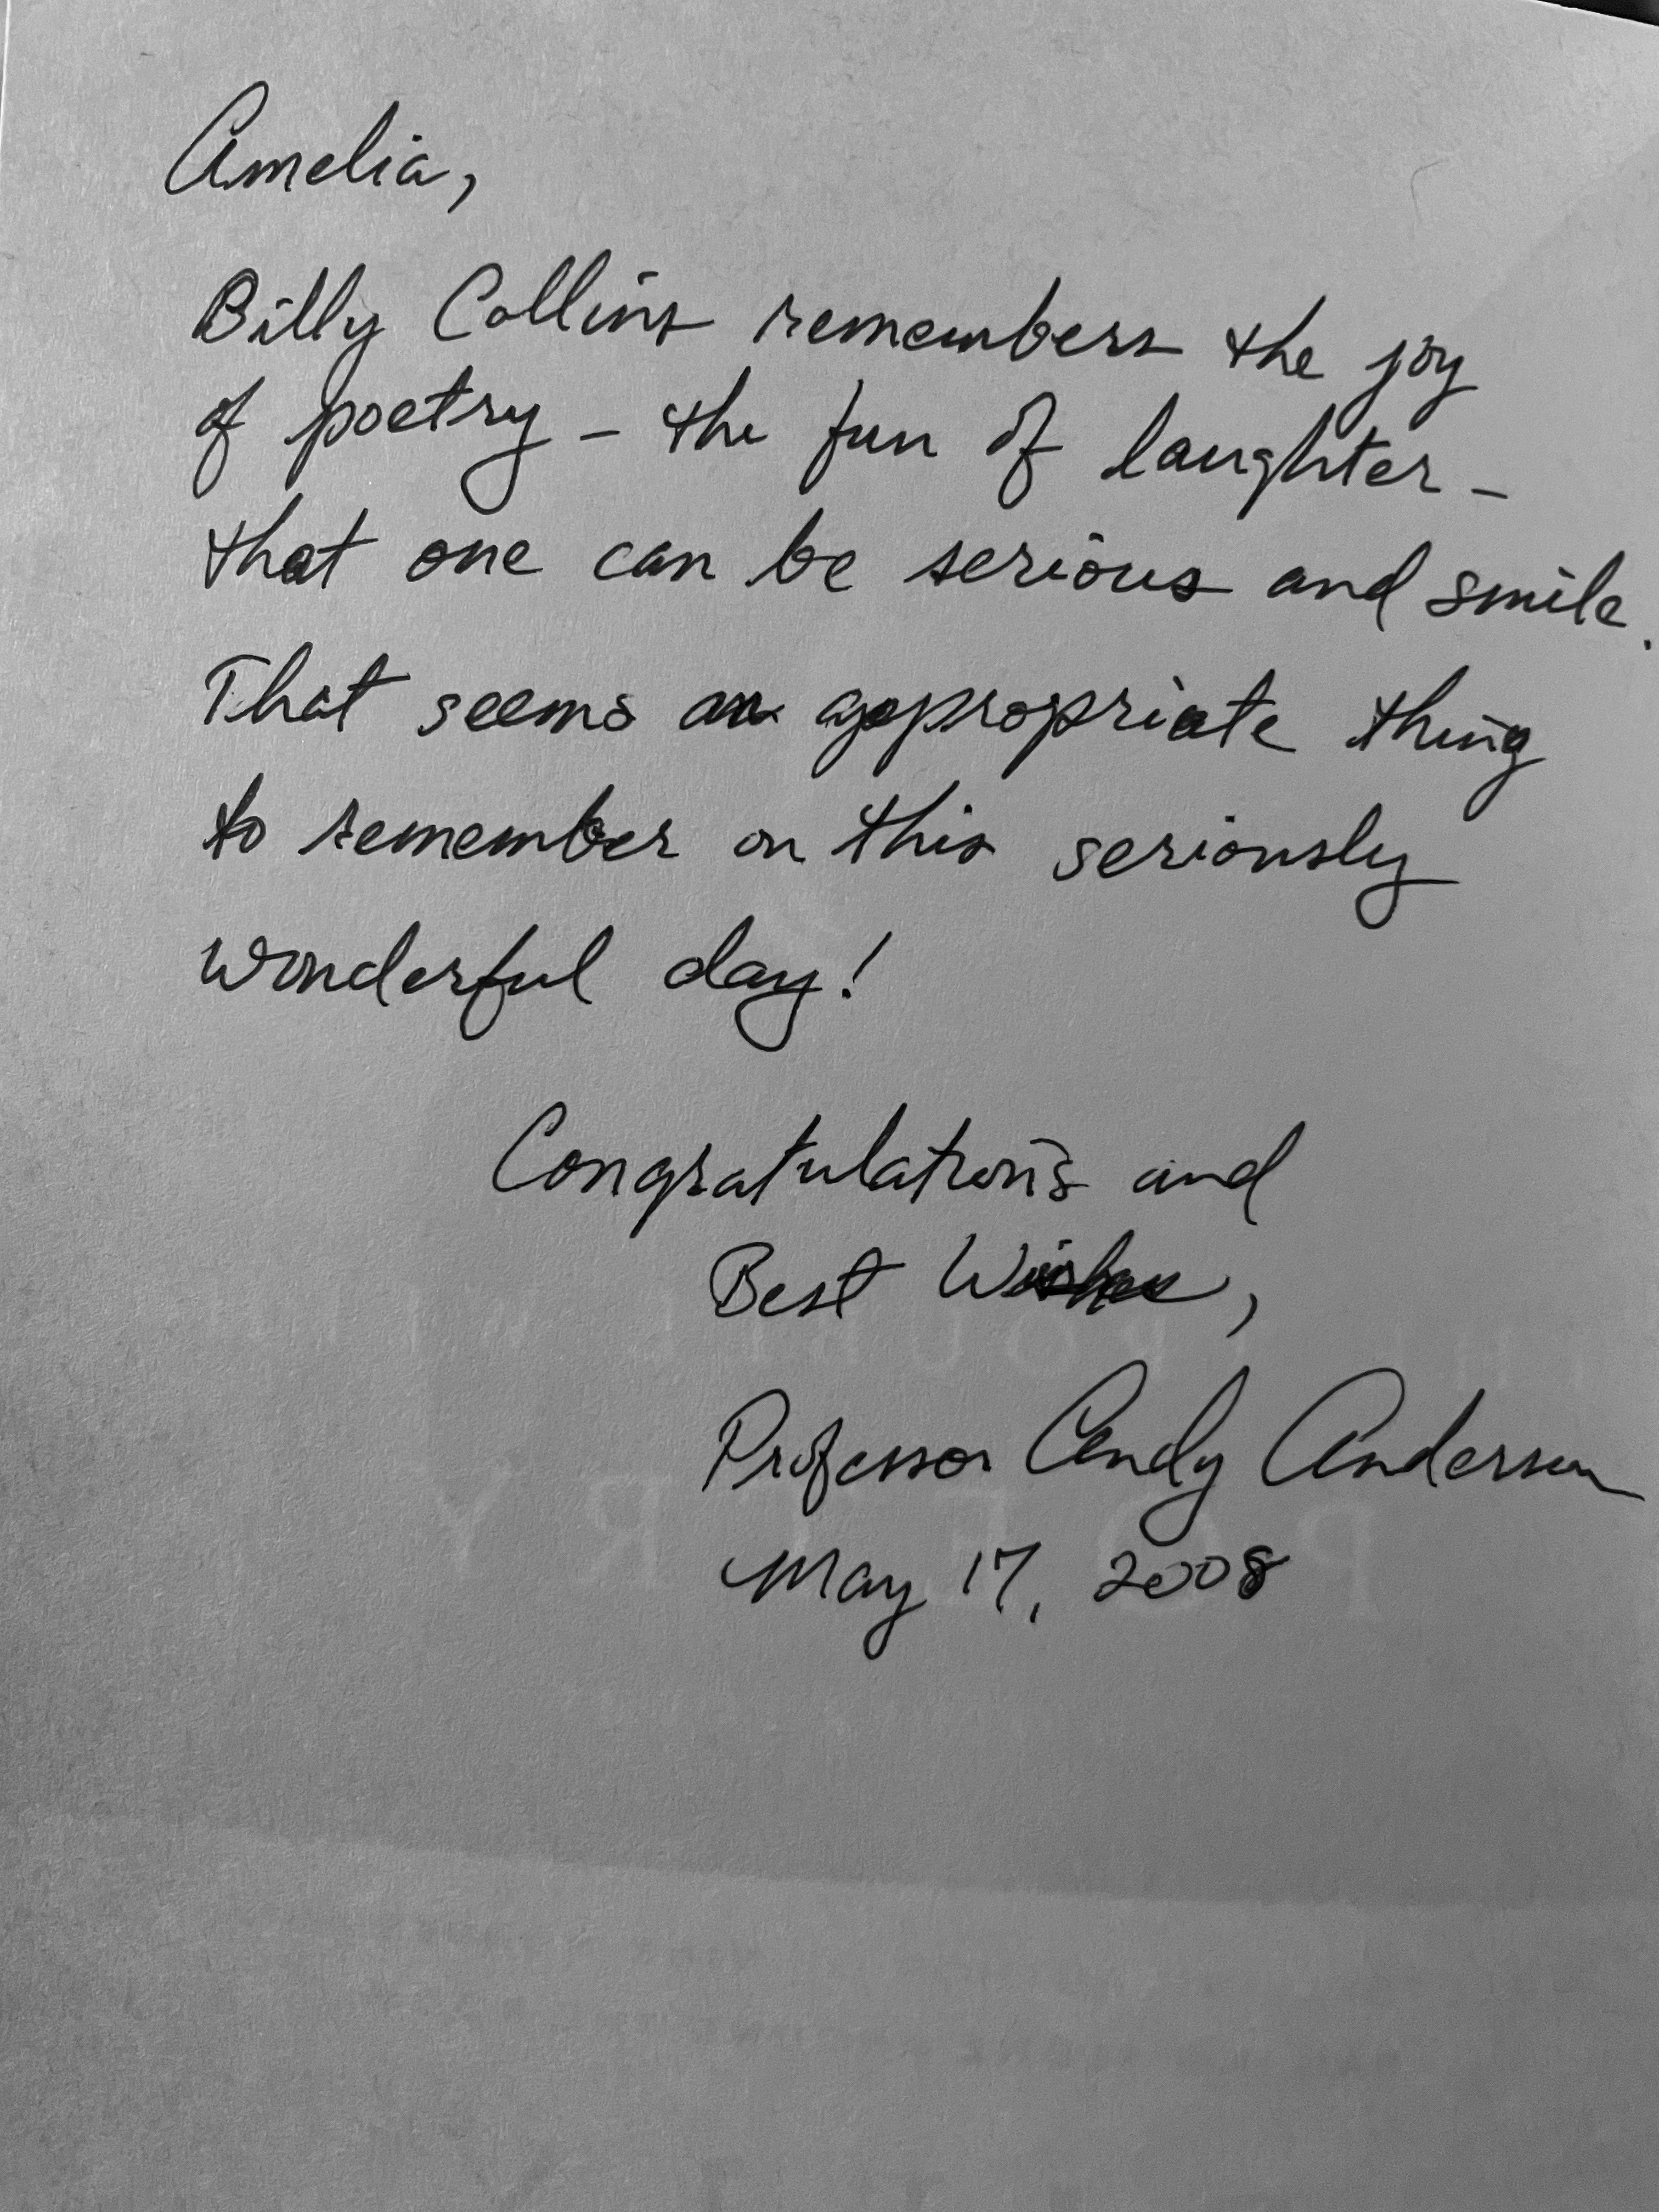 Amelia,
Billy Collins remembers the joy
of poetry – the fun of laughter –
that one can be serious and smile.
That seems an appropriate thing
to remember on this seriously
wonderful day!
Congratulations and
Best Wishes,
Professor Andy Anderson
May 17, 2008
POETRY